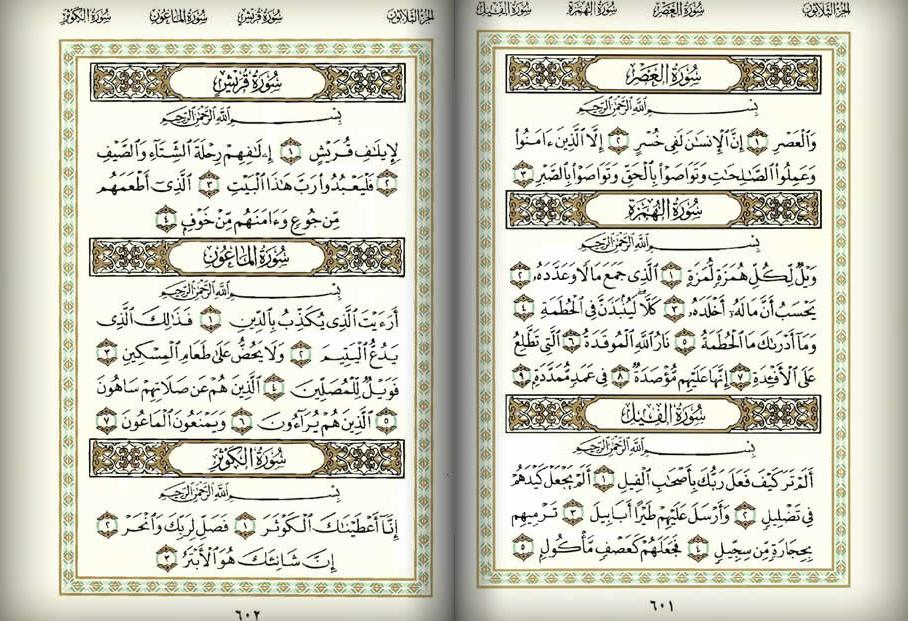 الجزء الثلاثون سورة العصر سورة الهمزة سورة الفيل
سورة العصر
بسم الله الرحمن الرحيم
وَالْعَصْرِ ١ إِنَّ الْإِنسَانَ لَفِي خُسْرٍ ٢ إِلَّا الَّذِينَ ءَامَنُوا
وَعَمِلُوا الصَّالِحَاتِ وَتَوَاصَوْا بِالْحَقِّ وَتَوَاصَوْا بِالصَّبْرِ ٣
سورة الهمزة
بسم الله الرحمن الرحيم
وَيْلٌ لِّكُلِّ هُمَزَةٍ لُّمَزَةٍ ١ الَّذِي جَمَعَ مَالًا وَعَدَّدَهُ ٢
يَحْسَبُ أَنَّ مَالَهُ أَخْلَدَهُ ٣ كَلَّا لَيُنبَذَنَّ فِي الْحُطَمَةِ ٤
وَمَا أَدْرَىٰكَ مَا الْحُطَمَةُ ٥ نَارُ اللَّهِ الْمُوقَدَةُ ٦ الَّتِي تَطَّلِعُ
عَلَى الْأَفْـِٔدَةِ ٧ إِنَّهَا عَلَيْهِم مُّؤْصَدَةٌ ٨ فِي عَمَدٍ مُّمَدَّدَةٍ ٩
سورة الفيل
بسم الله الرحمن الرحيم
أَلَمْ تَرَ كَيْفَ فَعَلَ رَبُّكَ بِأَصْحَابِ الْفِيلِ ١ أَلَمْ يَجْعَلْ كَيْدَهُمْ
فِي تَضْلِيلٍ ٢ وَأَرْسَلَ عَلَيْهِمْ طَيْرًا أَبَابِيلَ ٣ تَرْمِيهِم
بِحِجَارَةٍ مِّن سِجِّيلٍ ٤ فَجَعَلَهُمْ كَعَصْفٍ مَّأْكُولٍ ٥
٦٠١
الجزء الثلاثون سورة قريش سورة الماعون سورة الكوثر
سورة قريش
بسم الله الرحمن الرحيم
لِإِيلَافِ قُرَيْشٍ ١ إِۦلَافِهِمْ رِحْلَةَ الشِّتَاءِ وَالصَّيْفِ
٢ فَلْيَعْبُدُوا رَبَّ هَٰذَا الْبَيْتِ ٣ الَّذِي أَطْعَمَهُم
مِّن جُوعٍ وَءَامَنَهُم مِّنْ خَوْفٍ ٤
سورة الماعون
بسم الله الرحمن الرحيم
أَرَءَيْتَ الَّذِي يُكَذِّبُ بِالدِّينِ ١ فَذَٰلِكَ الَّذِي
يَدُعُّ الْيَتِيمَ ٢ وَلَا يَحُضُّ عَلَىٰ طَعَامِ الْمِسْكِينِ ٣
فَوَيْلٌ لِّلْمُصَلِّينَ ٤ الَّذِينَ هُمْ عَن صَلَاتِهِمْ سَاهُونَ
٥ الَّذِينَ هُمْ يُرَاءُونَ ٦ وَيَمْنَعُونَ الْمَاعُونَ ٧
سورة الكوثر
بسم الله الرحمن الرحيم
إِنَّا أَعْطَيْنَاكَ الْكَوْثَرَ ١ فَصَلِّ لِرَبِّكَ وَانْحَرْ ٢
إِنَّ شَانِئَكَ هُوَ الْأَبْتَرُ ٣
٦٠٢